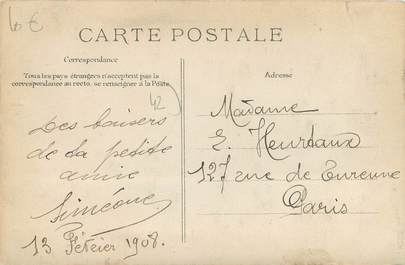 10 €
CARTE POSTALE
Correspondance
Tous les pays étrangers n'acceptent pas la
correspondance au recto. se renseigner à la Poste.
42
Des baisers
de ta petite
amie
Siméone
13 Février 1908.
Adresse
Madame
E. Heurtaux
127 rue de Turenne
Paris